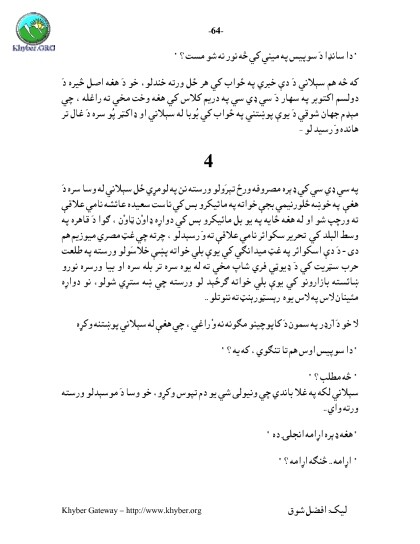 -64-
Khyber.ORG
" دا ساندا دَ سوييس په ميني کي څه نور نه شو مست؟ "
که څه هم سېلاني دَ دې خبرې په ځواب کي هر ځل ورته خندلو، خو دَ هغه اصل څېره دَ
دولسم اکتوبر په سهار دَ سي ډي سي په درېم کلاس کي هغه وخت مخې ته راغله، چي
مېډم جهان شوقي دَ يوې پوښتنې په ځواب کي يُوبا له سېلاني او ډاکټر پُو سره دَ غال تر
هانده وَرسېد لو -
4
په سي ډي سي کي ډېره مصروفه ورځ تېرَولو ورسته نن په لومړي ځل سېلاني له وسا سره دَ
هغې په خوښه څلورنيمې بجې خوا ته په مائيکرو بس کي ناست سعيده عائشه نامي علاقې
ته ورچپ شو او له هغه ځايه په يو بل مائيکرو بس کي دواړه ډاوْن ټاوْن، ګوا دَ قاهره په
وسط البلد کي تحرير سکوائر نامي علاقې ته وَرسېدلو، چرته چي غټ مصري ميوزيم هم
دى - دَ دې اسکوائر په غټ ميدانګي کي يوې بلې خواته پښې خلاسَولو ورسته په طلعت
حرب سټريټ کي دَ ډيوټي فري شاپ مخې ته له يوه سره تر بله سره او بيا ورسره نورو
ښائسته بازارونو کي يوې بلې خواته ګرځېد لو ورسته چي ښه ستړي شولو، نو دواړه
مئينان لاس په لاس يوه ريسټورينټ ته ننوتلو ..
لا خو دَ اَرډر په سمون دَ کاپوچينو مګونه نه وْ راغي، چي هغې له سېلاني پوښتنه وکړه
" دا سوييس اوس هم تا تنګوي، که يه؟ "
" څه مطلب؟ "
سېلاني لکه غلا باندي چي ونيولى شي يو دم تپوس وکړو، خو وسا دَ موسېدلو ورسته
ورته واي-
" هغه ډېره اړامه انجلۍ ده "
" اړامه .. څنګه اړامه؟ "
Khyber Gateway – http://www.khyber.org
ليک: افضل شوق